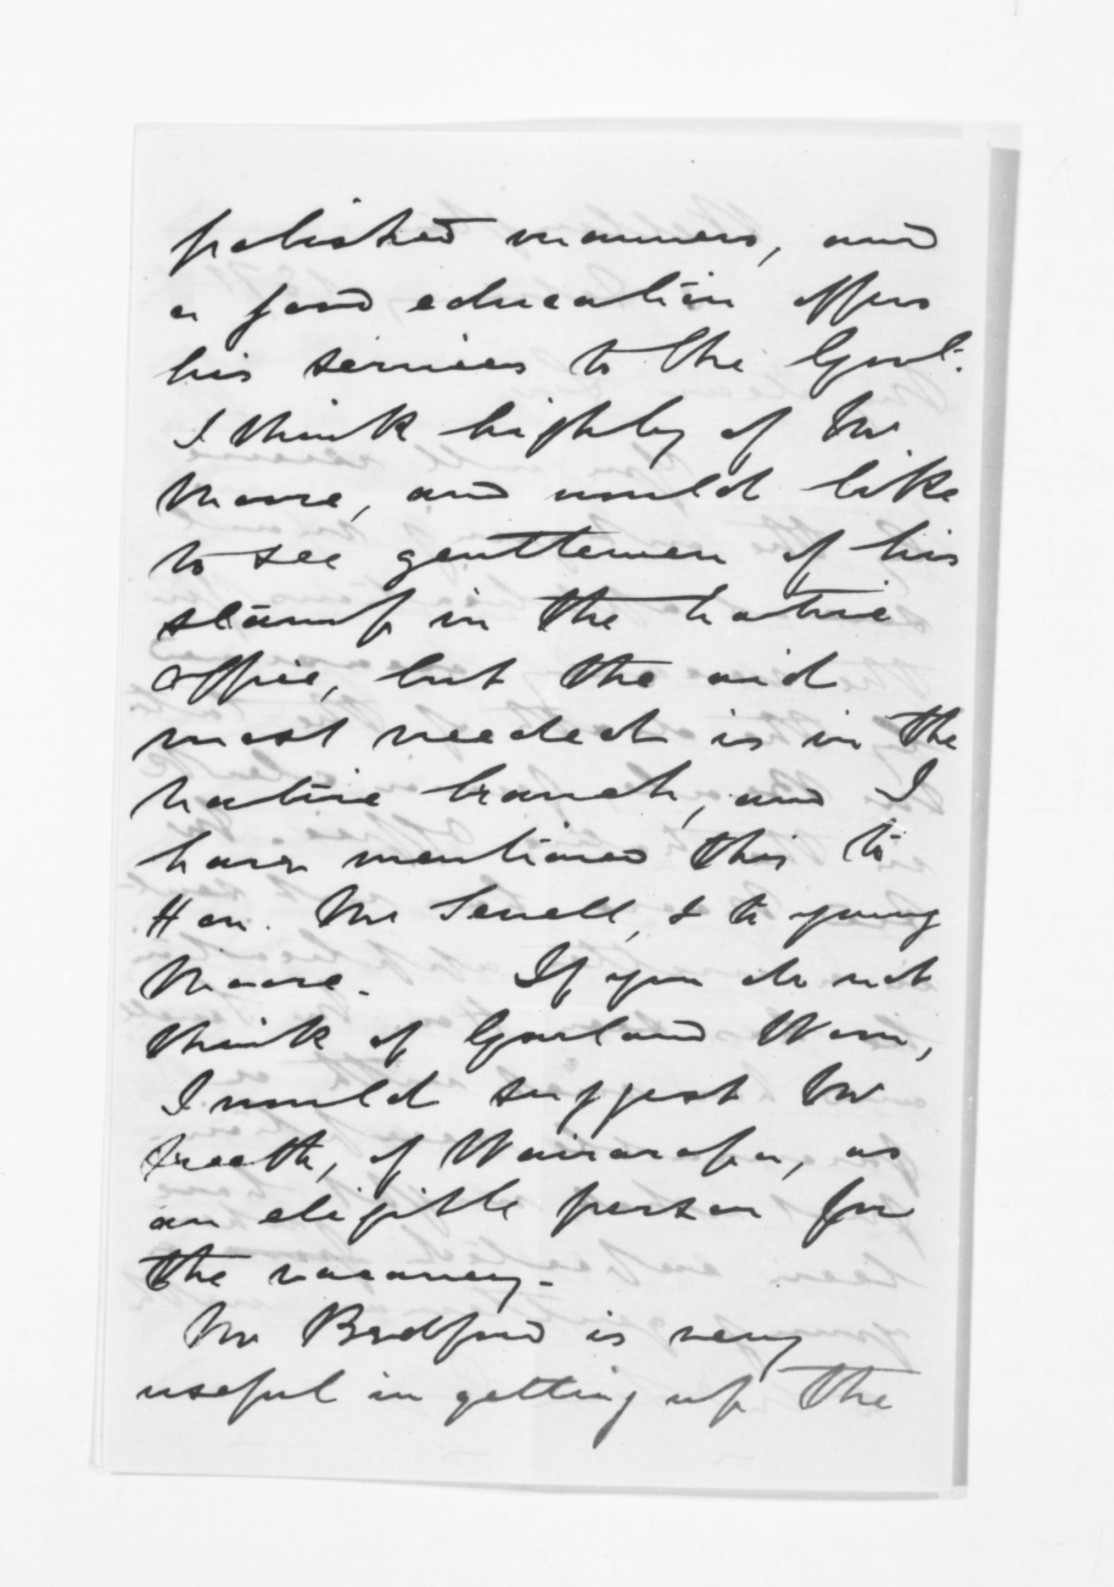 polished manners, and
a good education offers
his services to the Govt.
I think highly of Mr
Moore, and would like
to see gentlemen of his
stamp in the native
office, but the aid
most needed is in the
native branch, and I
have mentioned this to
Hon. Mr Sewell, & to young
Moore. If you do not
think of Garland Woon,
I would suggest Mr
Freeth, of Wairarapa, as
an eligible person for
the vacancy.
Mr Bradford is very
useful in getting up the